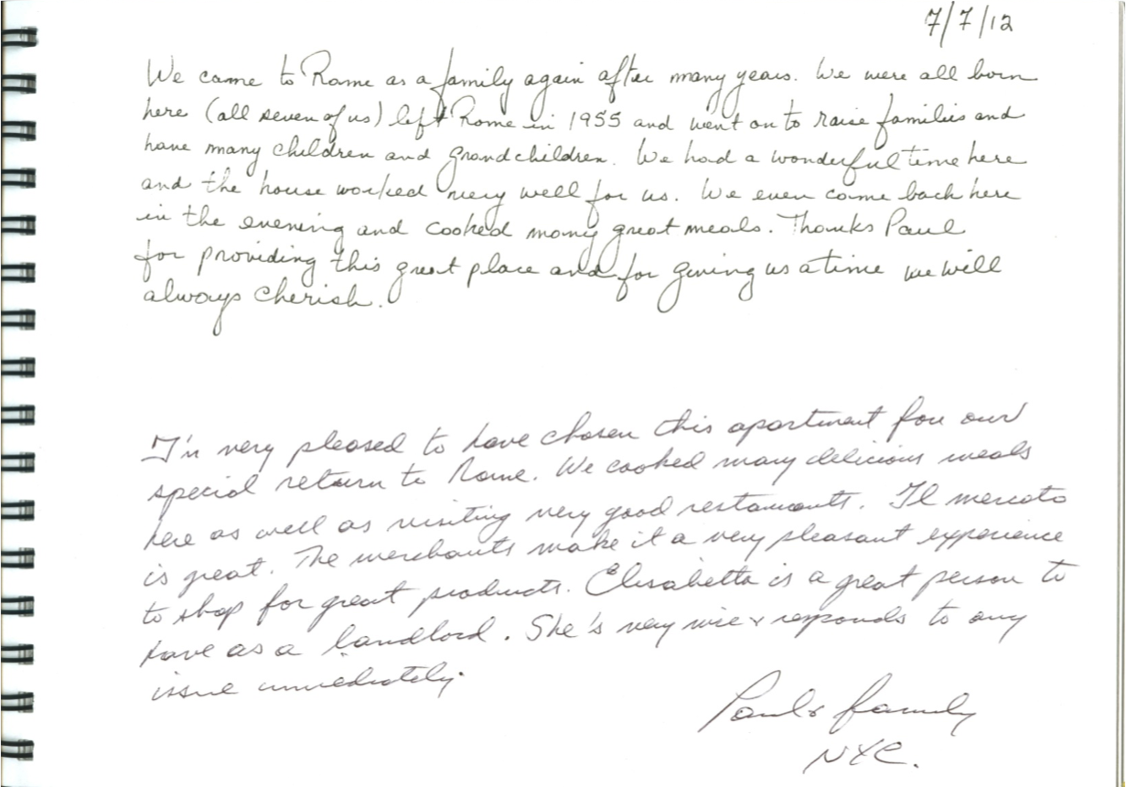 7/7/12
We came to Rome as a family again after many years. We were all born
here (all seven of us) left Rome in 1955 and went on to raise families and
have many children and grandchildren. We had a wonderful time here
and the house worked very well for us. We even came back here
in the evening and cooked many great meals. Thanks Paul
for providing this great place and for giving us a time we will
always cherish.
I'm very pleased to have chosen this apartment for our
special return to Rome. We cooked many delicious meals
here as well as visiting very good restaurants. Il mercato
is great. The merchants make it a very pleasant experience
to shop for great products. Elisabetta is a great person to
have as a landlord. She's very nice & responds to any
issue immediately.
Paul & family
NYC.